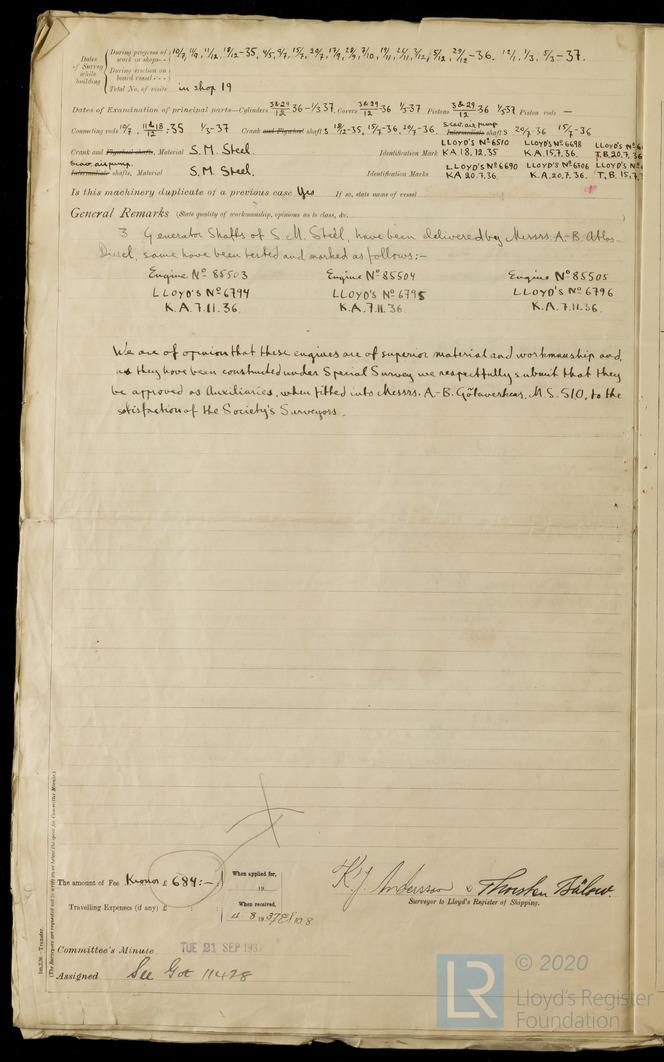 Dates of Survey while building
During progress of work in shops - - 10/7, 11/9, 11/12, 18/12 -35, 4/5, 9/7, 15/7, 20/7, 17/9, 28/9, 7/10, 19/11, 24/11, 3/12, 5/12, 29/12 -36. 12/1, 1/3, 5/3 -37.
During erection on board vessel - - -
Total No. of visits in shop 19
Dates of Examination of principal parts—Cylinders 3 & 29/12 36 - 1/3 37. Covers 3 & 29/12 -36 1/3-37 Pistons 3 & 29/12 36 1/3 37 Piston rods —
Connecting rods 10/7, 11 & 18/12 -35 1/3-37 Crank and Flywheel shafts 18/12-35, 15/7-36, 20/7-36. Scav. air pump Intermediate shafts 20/7-36 15/7-36
Crank and Flywheel shafts, Material S. M. Steel. Identification Mark LLOYD'S Nº 6510 K.A. 18.12.35 LLOYD'S Nº 6698 K.A. 15.7.36. LLOYD'S Nº T.B. 20.7.36
Scav. air pump Intermediate shafts, Material S. M. Steel. Identification Marks LLOYD'S Nº 6690 KA 20.7.36. LLOYD'S Nº 6706 K.A. 20.7.36. LLOYD'S Nº T.B. 15.7.
Is this machinery duplicate of a previous case Yes If so, state name of vessel
General Remarks (State quality of workmanship, opinions as to class, &c.
3 Generator Shafts of S. M. Steel, have been delivered by Messrs. A-B. Atlas-
Diesel, same have been tested and marked as follows:-
Engine Nº 85503 Engine Nº 85504 Engine Nº 85505
LLOYD'S Nº 6794 LLOYD'S Nº 6795 LLOYD'S Nº 6796
K.A. 7.11.36. K.A. 7.11.36 K.A. 7.11.36.
We are of opinion that these engines are of superior material and workmanship and
as they have been constructed under Special Survey we respectfully submit that they
be approved as Auxiliaries, when fitted into Messrs. A-B. Götaverken, M S. 510, to the
satisfaction of the Society's Surveyors.
The amount of Fee Kronor £ 684:- When applied for, 19
Travelling Expenses (if any) £ When received, 11 8 1937
K.J. Andersson & Thorsten Bülow.
Surveyor to Lloyd's Register of Shipping.
Committee's Minute TUE 21 SEP 1937
Assigned See Got 11428
(The Surveyors are requested not to write on or below the space for Committee Minute.)
LR © 2020
Lloyd's Register
Foundation